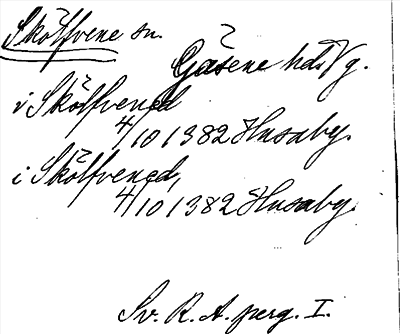 Skölfvene sn.
Gäsene hds Vg.
i Skölfvened
4/10 1382 Husaby.
i Skölfvened,
4/10 1382 Husaby.
Sv. R. A. perg. I.